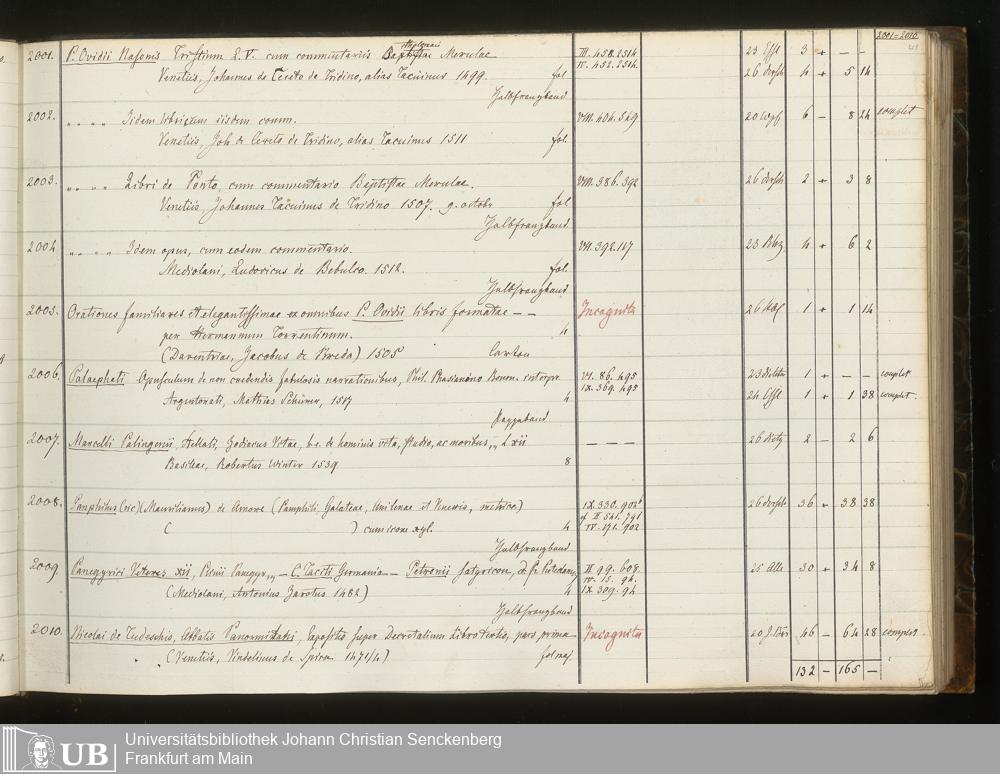 2001-2010.
2001. P. Ovidii Nasonis Tristium L. V. cum commentariis Merulae III. 458. 2514 23 3 + – –
Venetiis, Johannes de Cereto de Tridino, alias Tacuinus 1499. fol IV. 452. 2514. 26 4 + 5 14
Halbfranzband
2002. " " " " Iidem iisdem comm. VIII. 404. 549 20 6 – 8 24 complet
Venetiis, Joh de Cereto de Tridino, alias Tacuinus 1511 fol.
2003. " " " " Libri de Ponto, cum commentario Baptistae Merulae. VIII. 386. 392 26 2 + 3 8
Venetiis Johannes Tacuinus de Tridino 1507. 9. octobr fol
Halbfranzband
2004 " " " " Idem opus, cum eodem commentario. VII. 392. 117 23 4 + 6 2
Mediolani, Ludovicus de Bebulco. 1512. fol.
Halbfranzband
2005. Orationes familiares et elegantissimae ex omnibus P. Ovidii libris formatae – – Incognita 26 1 + 1 14
per Hermannum Torrentinum. 4
(Daventriae, Jacobus de Breda) 1505 Carton
2006. Palaephati Opusculum de non credendis fabulosis narrationibus, Phil. Phasianino Bonon. interpr VI. 86. 495 23 1 + – – complet
Argentorati, Mathias Schürer, 1517 4 IX. 369. 495 24 1 + 1 38 complet
Pappband
2007. Marcelli Palingenii, Stellati, Zodiacus Vitae, h.e. de hominis vita, studio, ac moribus, L xii – – – – 26 2 – 2 6
Basileae, Robertus Winter 1539 8
2008. Pamphilus (sic) (Maurilianus) de Amore (Pamphili Galateae, et Veneris, metrice) IX. 330. 902b 26 36 – 38 38
( ) cum icone xyl. 4 cf II 541. 791
IV. 171. 902
Halbfranzband
2009. Panegyrici Veteres xii, Plinii Panegyr, – C. Taciti Germania – Petronii Satyricon, II. 99. 608. 25 Alle 30 + 34 8
(Mediolani, Antonius Zarotus 1482) 4 IV. 15. 94.
IX. 309. 94
Halbfranzband
2010. Nicolai de Tudeschis, Abbatis Panormitani, Expositio super Decretalium Libro tertio, pars prima Incognita 20 46 – 64 28 complet
(Venetiis, Vindelinus de Spira 1471/4) fol maj.
132 – 165 –
UB
Universitätsbibliothek Johann Christian Senckenberg
Frankfurt am Main